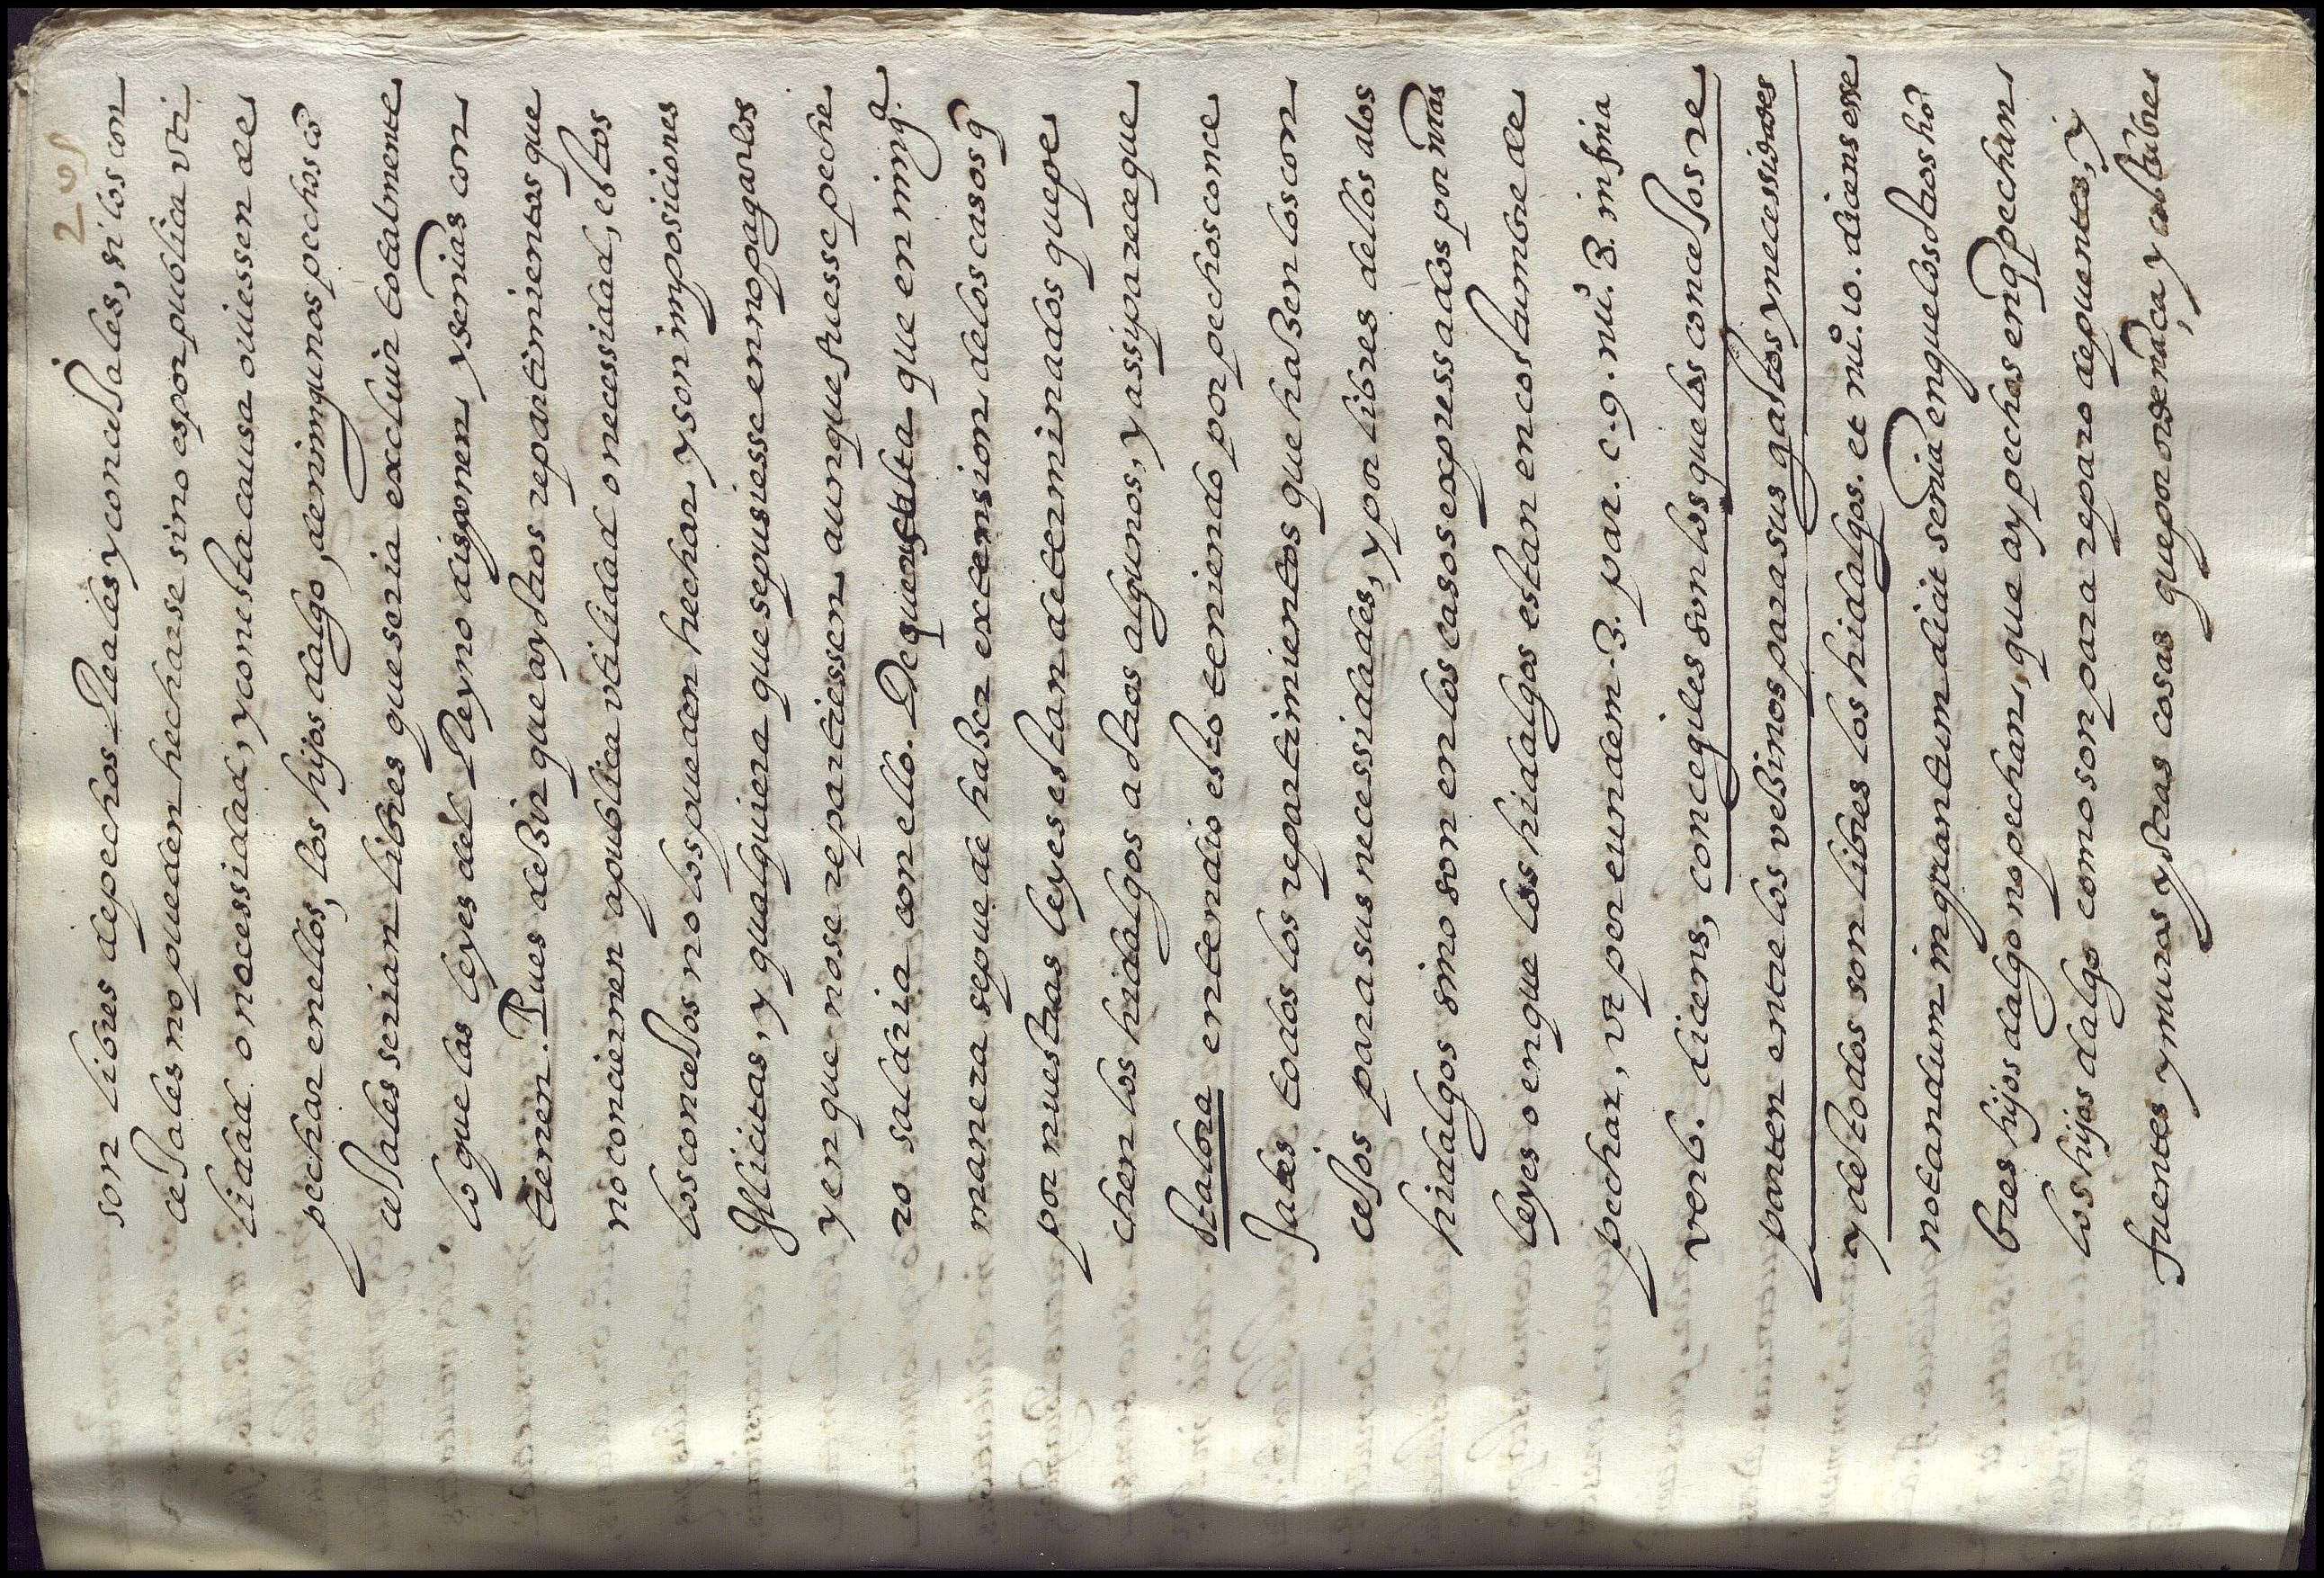 209
son libres de pechos Reales y concejales, si los con
cejales no pueden hecharse sino es por publica vti
lidad o necessidad, y con esta causa ouiessen de
pechar en ellos, los hijos dalgo, de ningunos pechos cō
cejales serian libres que seria excluir totalmente
lo que las leyes del Reyno disponen y seruias con
tienen. Pues desir que ay otros repartimientos que
no conciernen a publica vtilidad o necessidad, estos
los concejos no los pueden hechar y son imposiciones
Yllicitas, y qualquiera que se pusiesse en no pagarlos
y en que no se repartiessen aunque fuesse peche
ro saldria con ello. De que resulta que en ning.ª
manera se puede haber extension de los casos q̄
por nuestras leyes estan determinados que pe
chen los hidalgos a otros algunos, y assi parece que
entendio esto teniendo por pechos conce
jales todos los repartimientos que haben los con
cejos para sus necessidades, y por libres dellos a los
hidalgos sino son en los casos expressados por nr̄as
leyes o en que los hidalgos estan en costumbre de
pechar, vt per eundem. 3. par. c. 9. nu.º 3. in fina
verb. dicens, concegiles son los que los concejos re
parten entre los vebinos para sus gastos y necessidades
y de todos son libres los hidalgos. et nu.º 10. dicens esse
notandum in quantum dicit seruia en que los otros hō
bres hijos dalgo no pechan, que ay pechos en q̄ pechan
los hijos dalgo como son para reparo de puentes, y
fuentes y muros y otras cosas que por ordenāça y costūbre